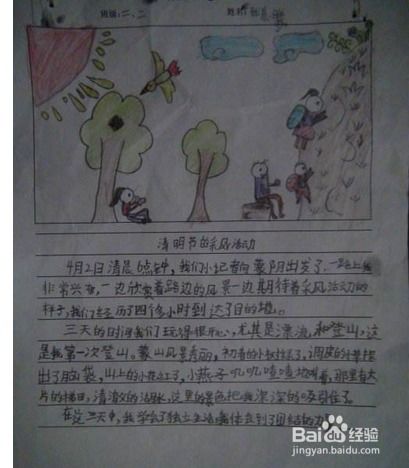 班级:二、二 姓名:
清明节的采风活动
4月2日清晨6点钟，我们小记者向蒙阴出发了，一路上我
非常兴奋，一边欣赏着路边的风景一边期待着采风活动的
样子，我们经历了四个多小时到达了目的地。
三天的时间我们玩得很开心，尤其是漂流，和登山，这
是我第一次登山。蒙山风景秀丽，初春的小树发芽了，调皮的
出了脑袋，山上的小花红了，小燕子叽叽喳喳地叫着，那里有大
片的梯田，清澈的湖水，这里的景色把我深深的吸引住了。
在这三天中，我学会了独立生活，我体会到了团结的力
Baidu经验
jingyan.baidu.com